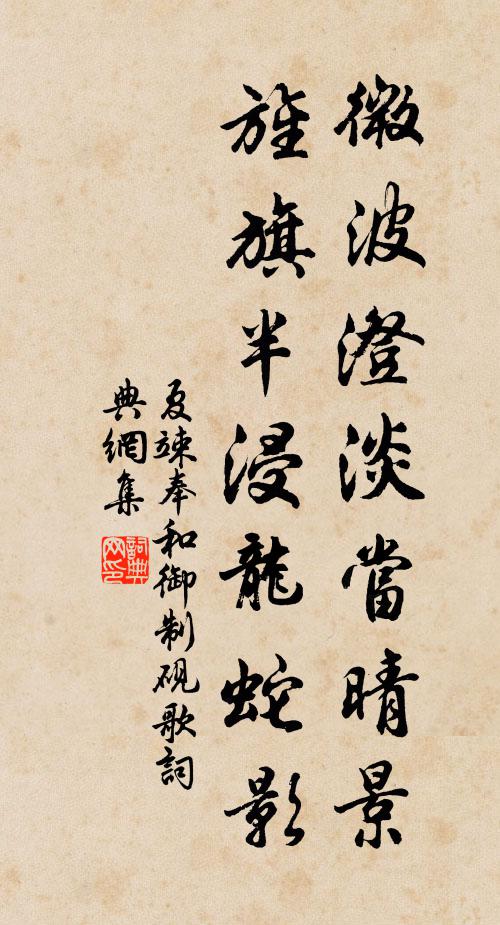 微波澄淡當晴景
旌旗半浸龍蛇影
夏竦奉和御制硯歌詞
典網集
詞典网印